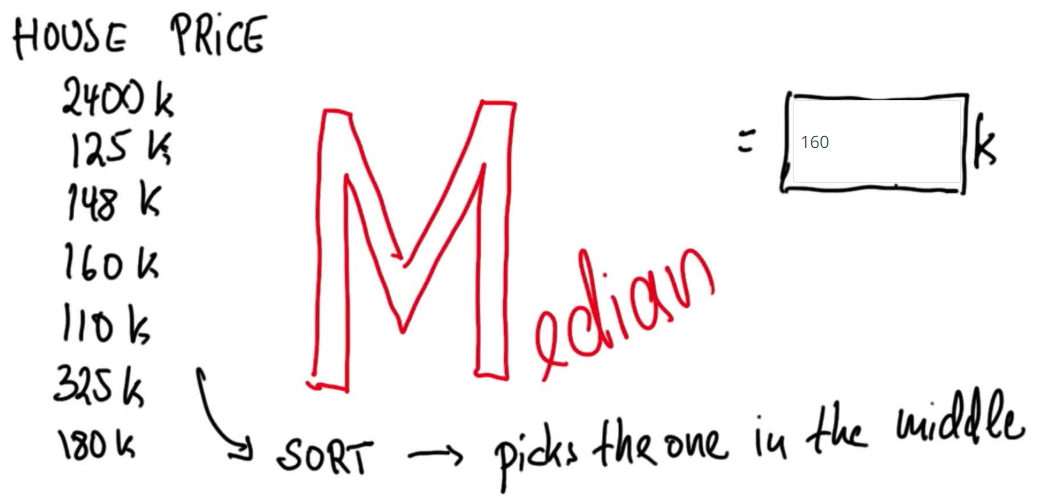 HOUSE PRICE
2400 k
125 k
148 k
160 k
110 k
325 k
180 k
Median
= 160 k
SORT → picks the one in the middle